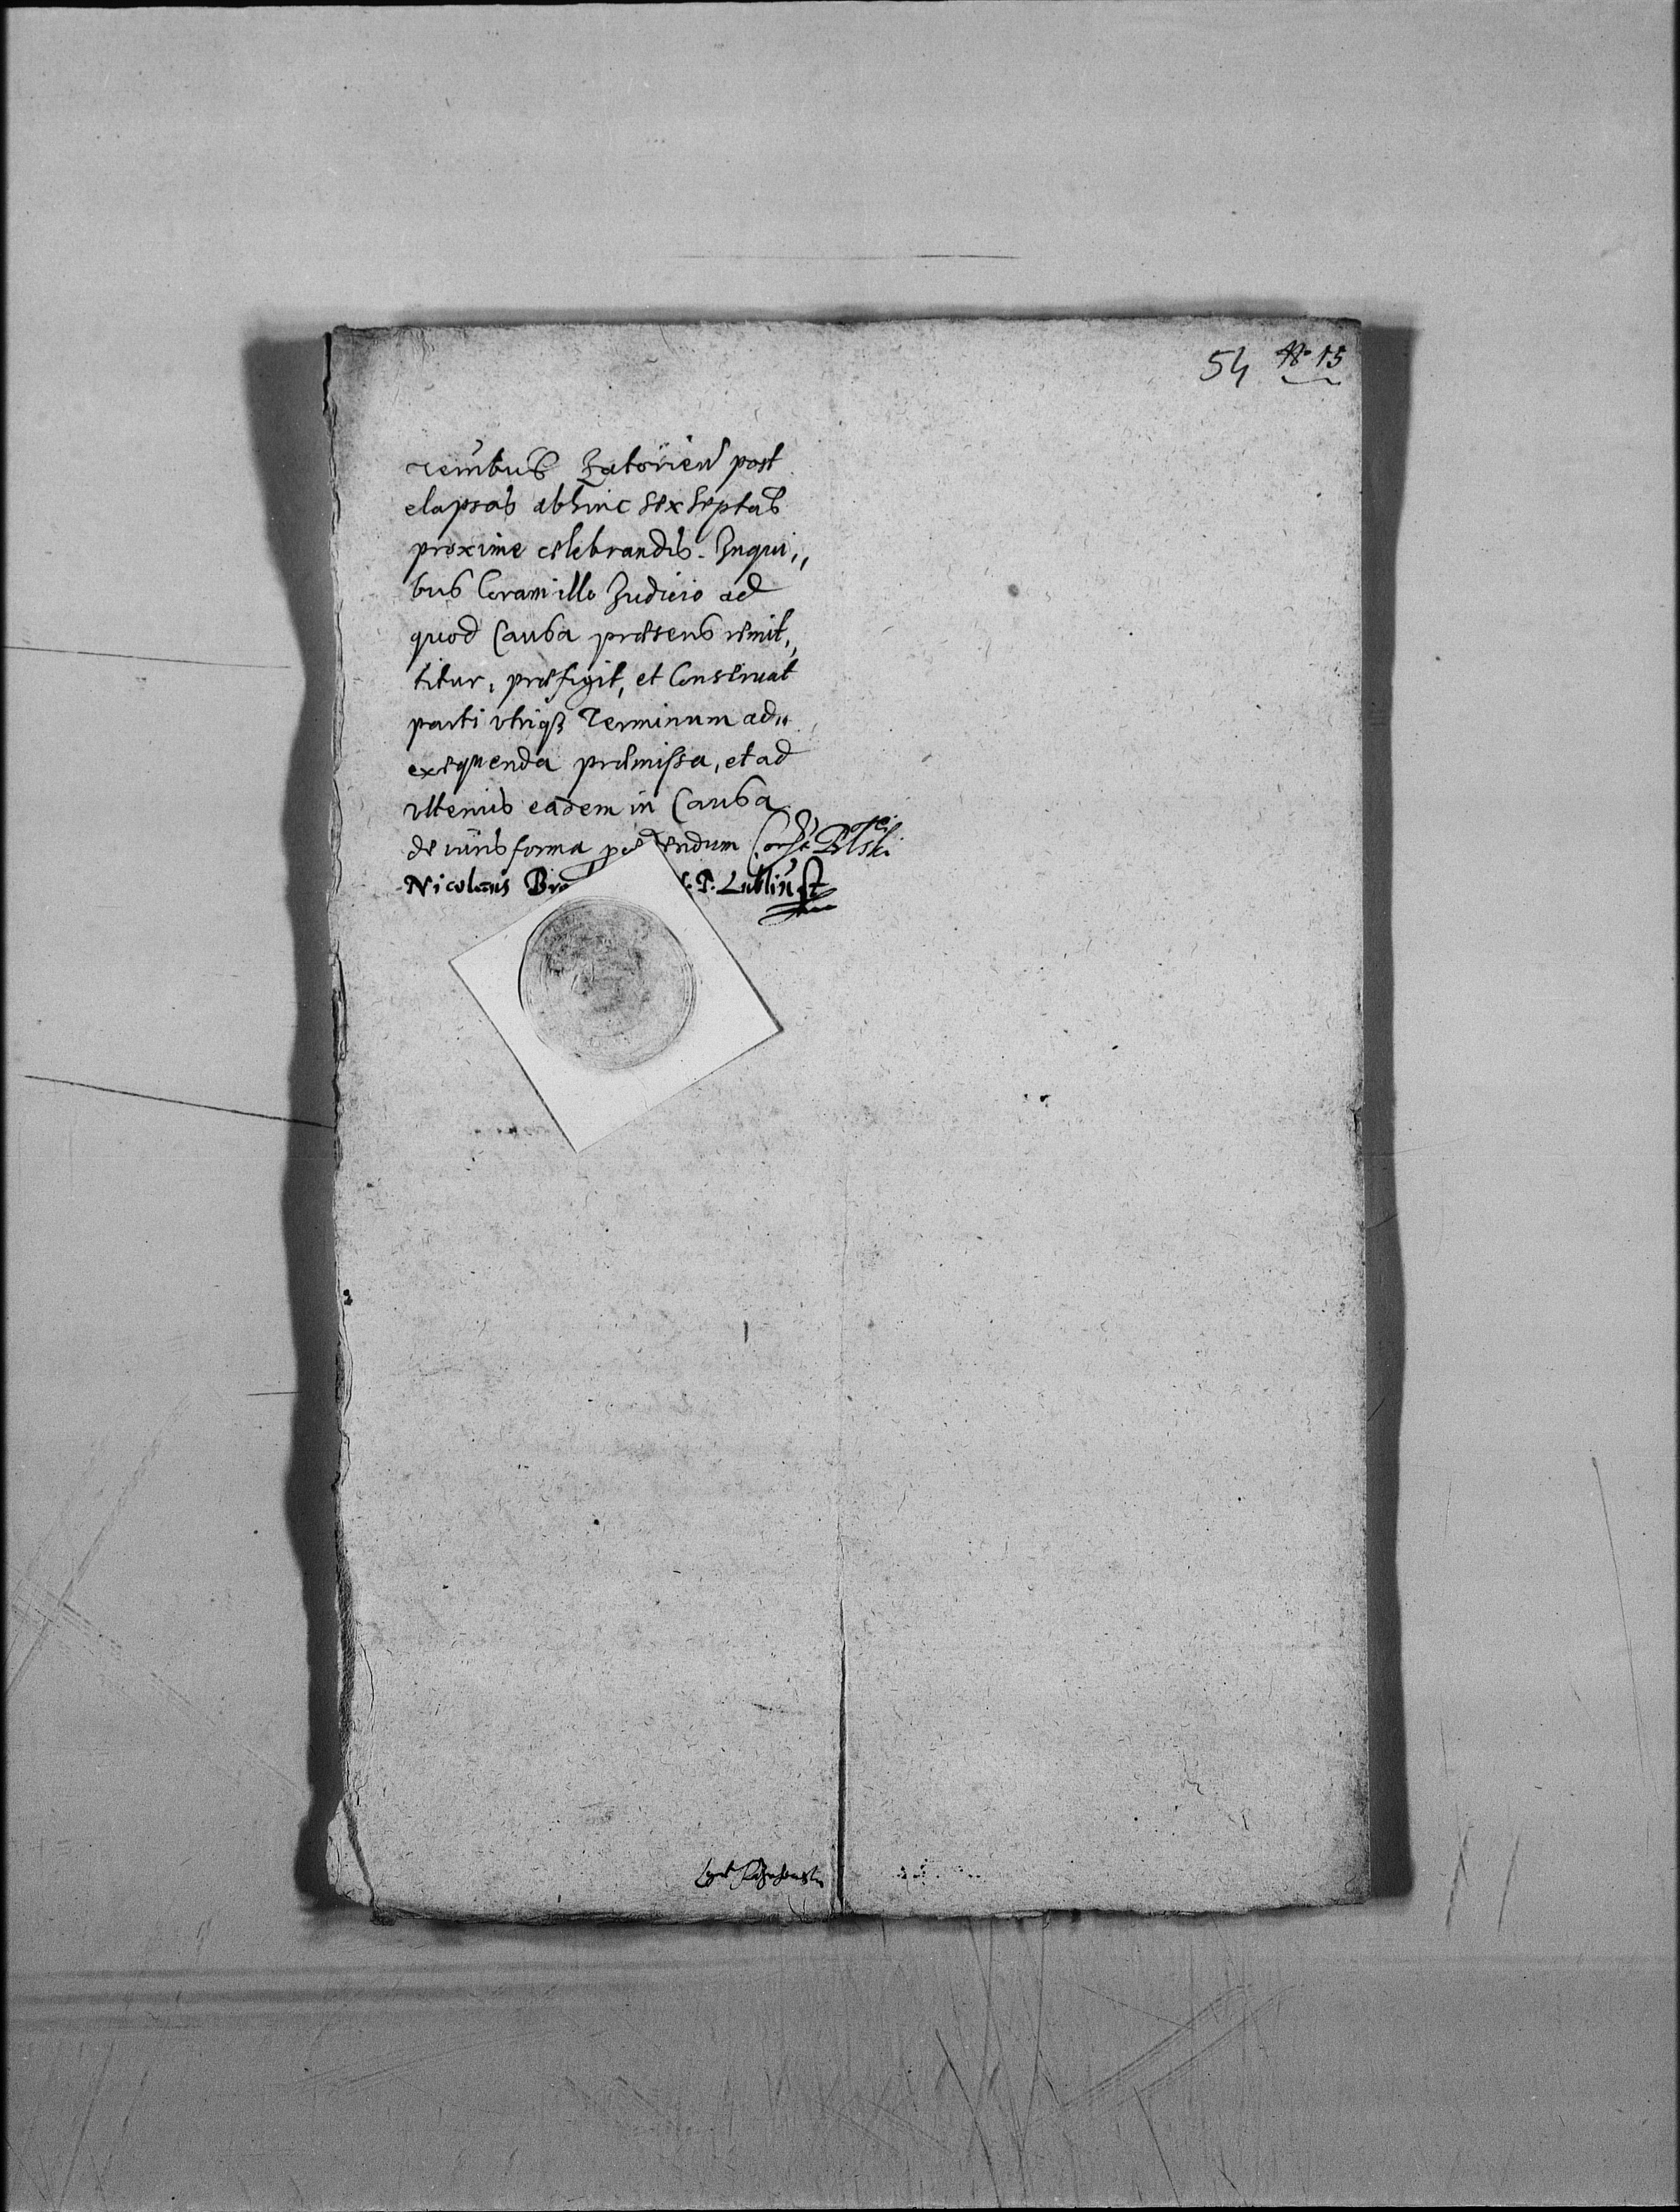 54 No 15
Zatorien̄ post
elapsas abhinc sex septas
proxime celebrandis. Inqui,,
bus Coram illo Iudicio ad
quod Causa praesens remit,,
titur, praefigit, et Conservat
parti utriqꝫ Terminum ad,,
exequenda praemissa, et ad
ulterius eadem in Causa
de iuris forma endum
Nicolaus P. Lublin̄